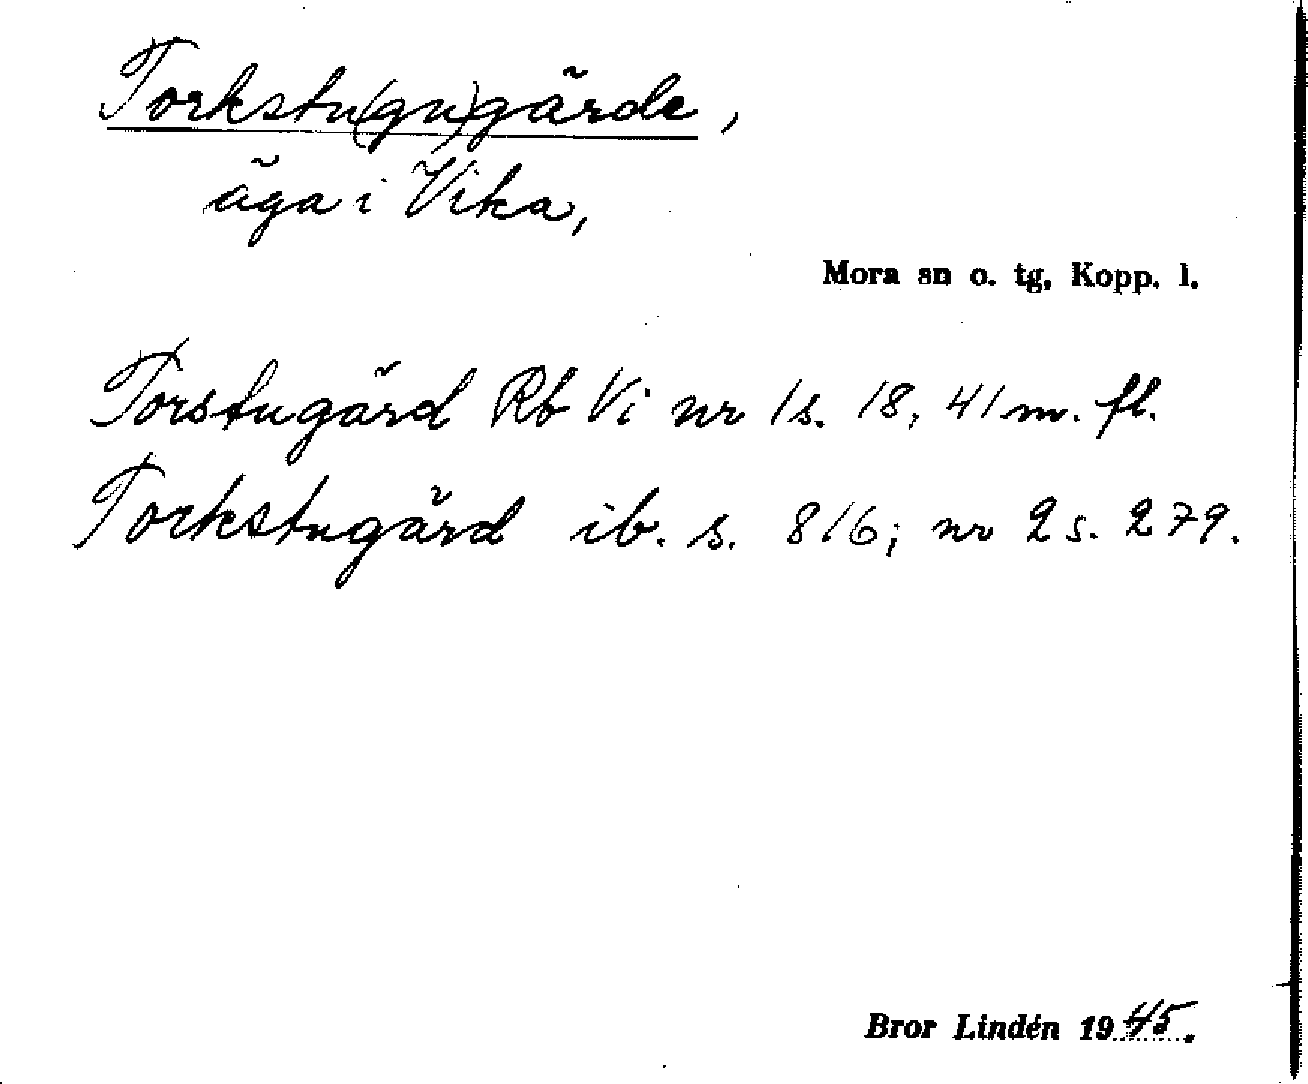 Torkstu(gu)gärde,
äga i Vika,
Mora sn o. tg. Kopp. l.
Torstugärd Rb Vi nr 1 s. 18, 41 m. fl.
Torkstugärd ib. s. 816; nr 2 s. 279.
Bror Lindén 1945.